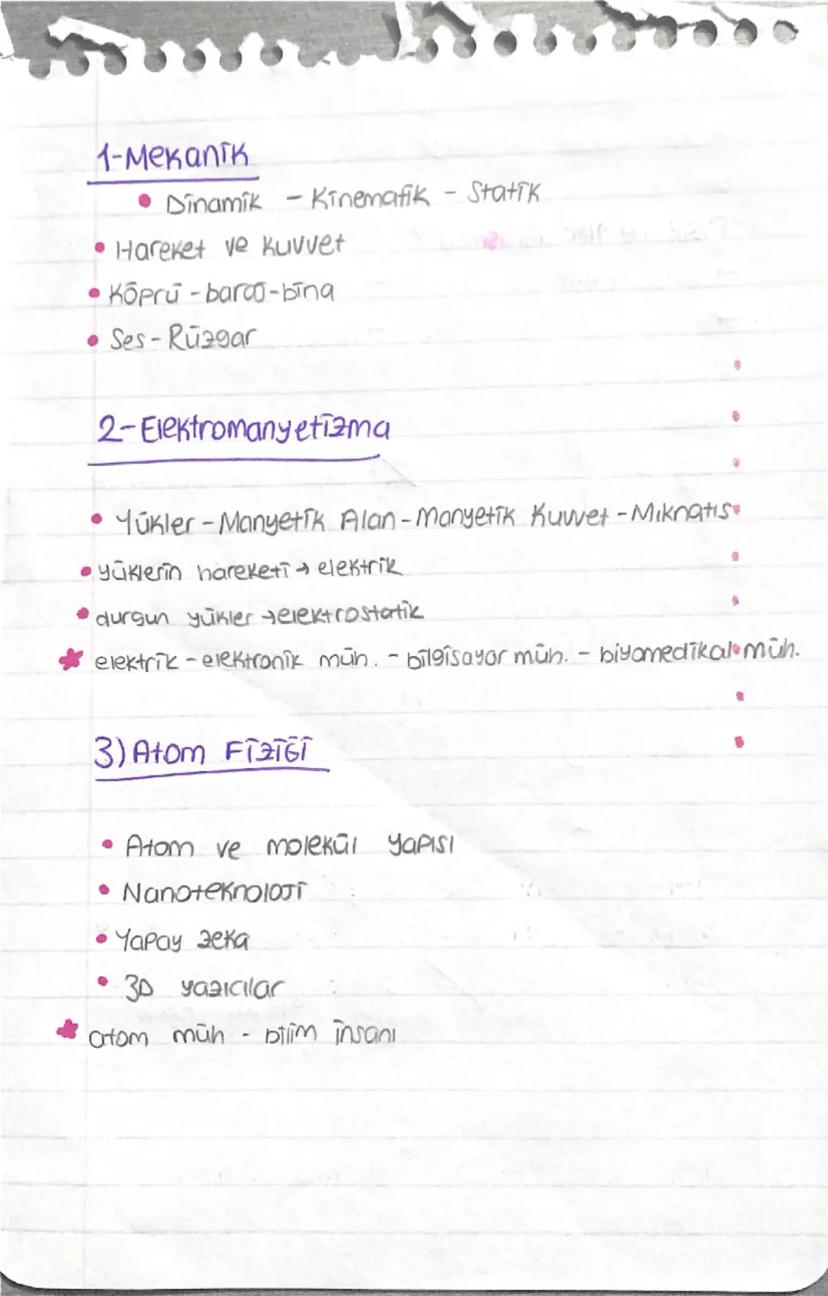 1-Mekanik
• Dinamik - Kinematik - Statik
• Hareket ve kuvvet
• Köprü - baraj - bina
• Ses - Rüzgar
2- Elektromanyetizma
• Yükler - Manyetik Alan - Manyetik Kuvvet - Mıknatıs
• yüklerin hareketi → elektrik
• durgun yükler → elektrostatik
* elektrik - elektronik müh. - bilgisayar müh. - biyomedikal müh.
3) Atom Fiziği
• Atom ve molekül yapısı
• Nanoteknoloji
• Yapay zeka
• 3D yazıcılar
* atom müh - bilim insanı